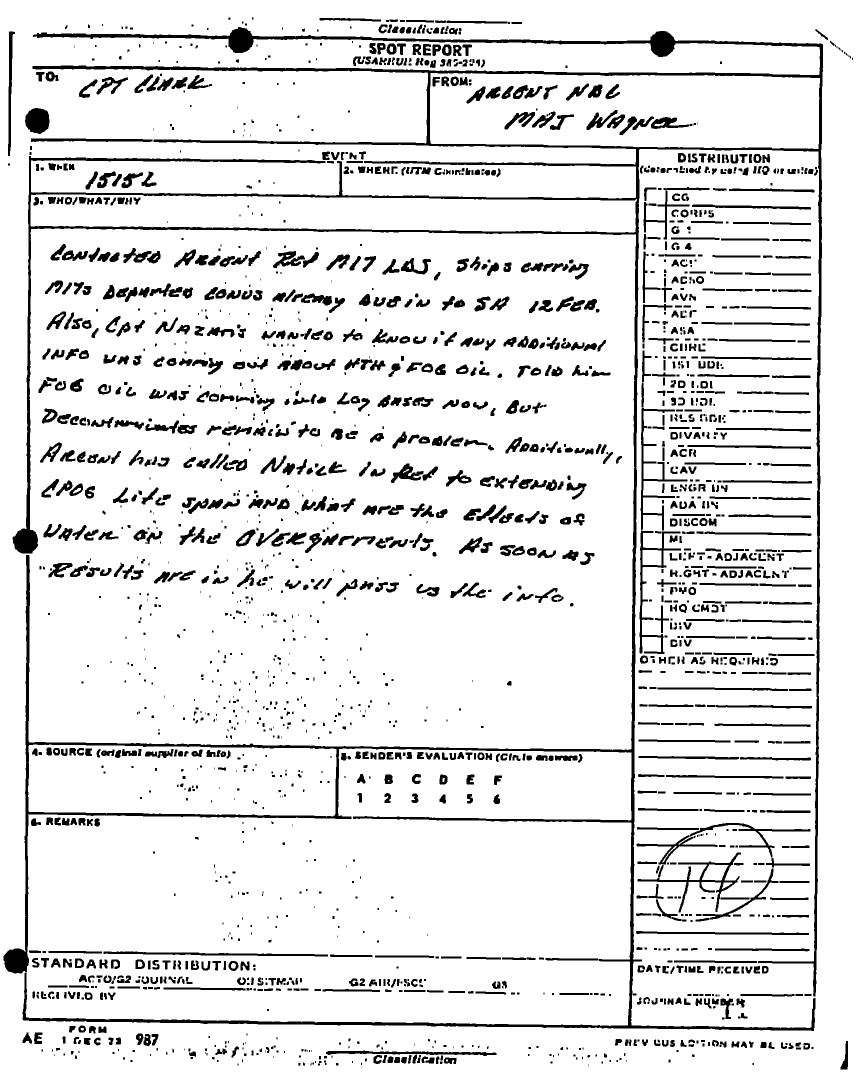 Classification
SPOT REPORT
(USAREUR Reg 380-221)
TO: CPT CLARK
FROM: ARCENT NBC
MAJ WAGNER
EVENT
1. WHEN 1515L
2. WHERE (UTM Coordinates)
3. WHO/WHAT/WHY
CONTACTED ARCENT Ref M17 LDS, Ships carring
M17s DEPARTED CONUS already DUE in to SA 12 FEB.
Also, Cpt NAZARIS wanted to know if any ADDITIONAL
INFO WAS comming out About HTH & FOG OIL. Told him
FOG OIL WAS comming into Log BASES NOW, BUT
Decontaminates remain to be a problem. Additionally,
ARCENT has called Natick in Ref to extending
CPOG Life span AND what ARE the Effects of
WATER ON the OVERGARMENTS. As soon as
Results are in he will pass us the info.
DISTRIBUTION
(determined by using HQ or units)
CG
CORPS
G 1
G 4
AVN
ASA
CHRL
1ST BDE
2D BDE
3D BDE
RES BDE
DIVARTY
ACR
CAV
ENGR BN
ADA BN
DISCOM
MI
LEFT-ADJACENT
RIGHT-ADJACENT
PMO
HQ CMDT
DIV
DIV
OTHER AS REQUIRED
4. SOURCE (original supplier of info)
5. SENDER'S EVALUATION (Circle answers)
A B C D E F
1 2 3 4 5 6
6. REMARKS
14
STANDARD DISTRIBUTION:
ACTO/G2 JOURNAL G3 SITMAP G2 AIR/FSCE G3
RECEIVED BY
DATE/TIME RECEIVED
JOURNAL NUMBER
AE FORM 1 DEC 73 987
PREVIOUS EDITION MAY BE USED.
Classification